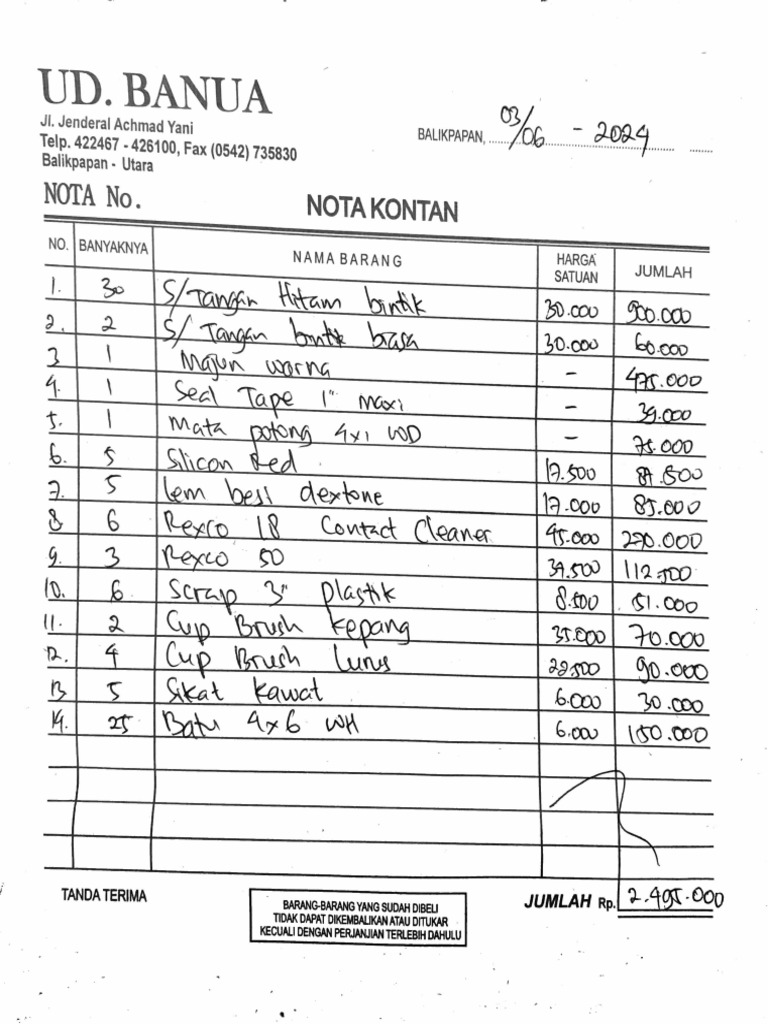 UD. BANUA
Jl. Jenderal Achmad Yani
Telp. 422467 - 426100, Fax (0542) 735830
Balikpapan - Utara
BALIKPAPAN, 03/06 - 2024
NOTA No.
NOTA KONTAN
NO. BANYAKNYA NAMA BARANG HARGA SATUAN JUMLAH
1. 30 S/Tangan Hitam bintik 30.000 900.000
2. 2 S/ Tangan bintik biasa 30.000 60.000
3 1 Majun warna - 475.000
4. 1 Seal Tape 1" Maxi - 39.000
5. 1 Mata potong 4x1 WD - 75.000
6. 5 Silicon Red 17.500 87.500
7. 5 lem besi dextone 17.000 85.000
8 6 Rexco 18 Contact Cleaner 45.000 270.000
9. 3 Rexco 50 37.500 112.500
10. 6 Scrap 3" plastik 8.500 51.000
11. 2 Cup Brush kepang 35.000 70.000
12. 4 Cup Brush Lurus 22.500 90.000
13 5 Sikat kawat 6.000 30.000
14. 25 Batu 4x6 WH 6.000 150.000
TANDA TERIMA
BARANG-BARANG YANG SUDAH DIBELI
TIDAK DAPAT DIKEMBALIKAN ATAU DITUKAR
KECUALI DENGAN PERJANJIAN TERLEBIH DAHULU
JUMLAH Rp. 2.495.000